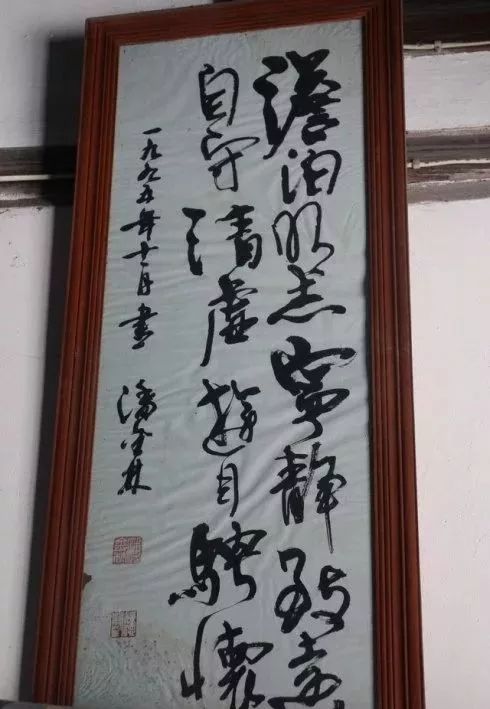 澹泊明志宁静致远
自守清虚游目骋怀
一九九五年十一月书